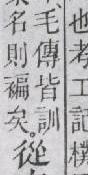 也考工記樸
毛傳皆訓
名則褊矣。從